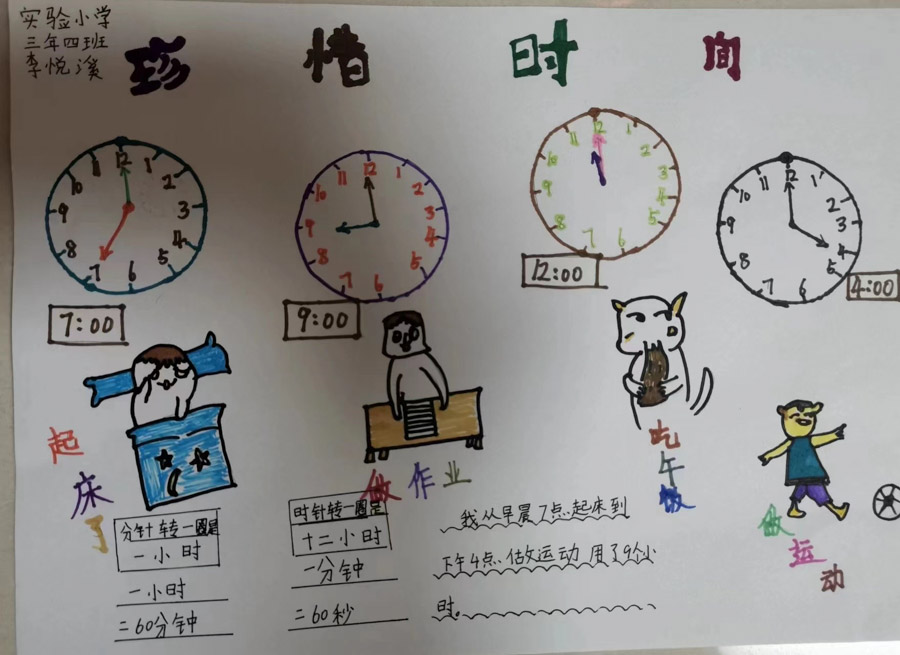 实验小学
三年四班
李悦溪
珍惜时间
12 1 2 3 4 5 6 7 8 9 10 11
12 1 2 3 4 5 6 7 8 9 10 11
12 1 2 3 4 5 6 7 8 9 10 11
12 1 2 3 4 5 6 7 8 9 10 11
7:00
9:00
12:00
4:00
起床了
做作业
吃午饭
做运动
分针转一圈是
一小时
一小时
=60分钟
时针转一圈是
十二小时
一分钟
=60秒
我从早晨7点起床到
下午4点做运动用了9个小
时。